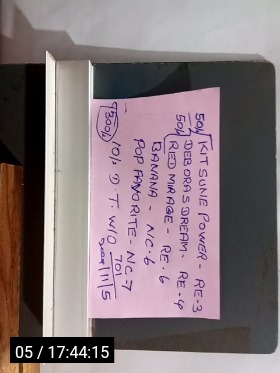 50/ KITSUNE POWER - RE-3
50/ DEBORAS DREAM - RE-4
RED MIRAGE - RE.6
BANANA - NC.6
POP FAVORITE - NC.7
10/. D.T. W/O 701
300/ 11/5
05 / 17:44:15